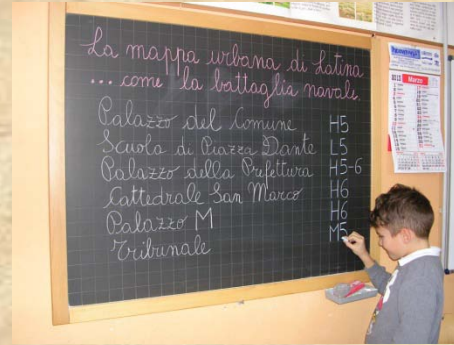 La mappa urbana di Latina
... come la battaglia navale.
Palazzo del Comune H5
Scuola di Piazza Dante L5
Palazzo della Prefettura H5-6
Cattedrale San Marco H6
Palazzo M H6
Tribunale M5
Marzo